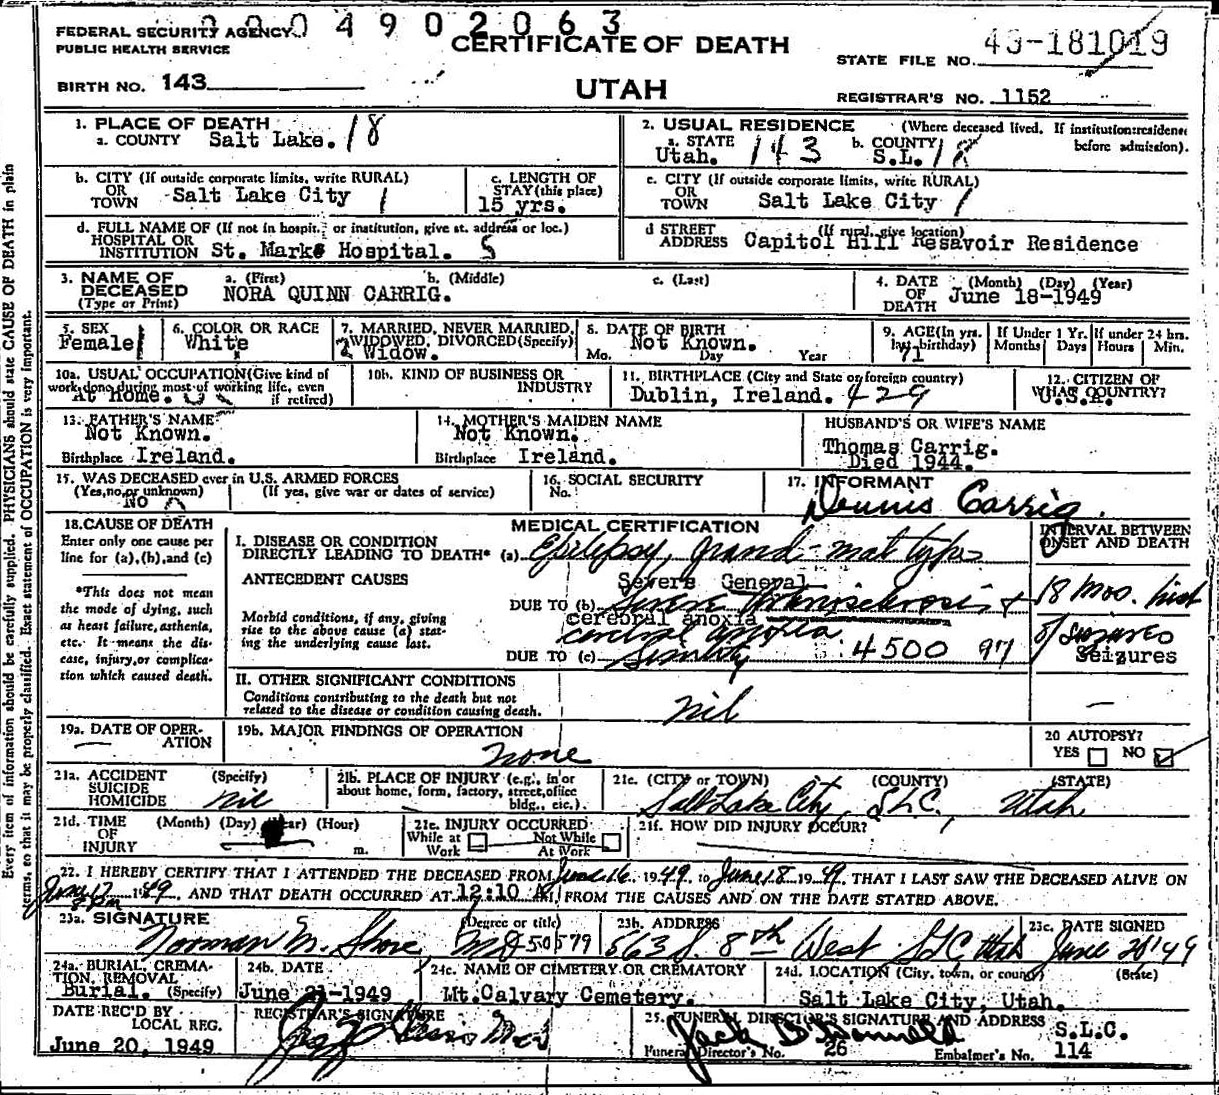 0004902063
FEDERAL SECURITY AGENCY
PUBLIC HEALTH SERVICE
CERTIFICATE OF DEATH
STATE FILE NO. 49-181019
BIRTH NO. 143
UTAH
REGISTRAR'S NO. 1152
1. PLACE OF DEATH
a. COUNTY Salt Lake. 18
2. USUAL RESIDENCE (Where deceased lived. If institution: residence before admission).
a. STATE Utah. 143 b. COUNTY S.L. 18
b. CITY (If outside corporate limits, write RURAL) OR TOWN Salt Lake City 1
c. LENGTH OF STAY (this place) 15 yrs.
c. CITY (If outside corporate limits, write RURAL) OR TOWN Salt Lake City 1
d. FULL NAME OF (If not in hospit. or institution, give st. address or loc.) HOSPITAL OR INSTITUTION St. Marks Hospital. 5
d STREET ADDRESS (If rural, give location) Capitol Hill Resavoir Residence
3. NAME OF DECEASED (Type or Print) a. (First) b. (Middle) c. (Last)
NORA QUINN CARRIG.
4. DATE OF DEATH (Month) (Day) (Year) June 18-1949
5. SEX Female 1
6. COLOR OR RACE White
7. MARRIED, NEVER MARRIED, WIDOWED, DIVORCED (Specify) 2 Widow.
8. DATE OF BIRTH Not Known. Mo. Day Year
9. AGE (In yrs. last birthday) 71
If Under 1 Yr. Months Days
If under 24 hrs. Hours Min.
10a. USUAL OCCUPATION (Give kind of work done during most of working life, even if retired) At Home.
10b. KIND OF BUSINESS OR INDUSTRY
11. BIRTHPLACE (City and State or foreign country) Dublin, Ireland. 429
12. CITIZEN OF WHAT COUNTRY? U.S.A.
13. FATHER'S NAME Not Known.
Birthplace Ireland.
14. MOTHER'S MAIDEN NAME Not Known.
Birthplace Ireland.
HUSBAND'S OR WIFE'S NAME
Thomas Carrig.
Died 1944.
15. WAS DECEASED ever in U.S. ARMED FORCES
(Yes, no, or unknown) (If yes, give war or dates of service)
NO
16. SOCIAL SECURITY No.
17. INFORMANT
Dennis Carrig.
18. CAUSE OF DEATH
Enter only one cause per line for (a), (b), and (c)
*This does not mean the mode of dying, such as heart failure, asthenia, etc. It means the disease, injury, or complication which caused death.
MEDICAL CERTIFICATION
INTERVAL BETWEEN ONSET AND DEATH
I. DISEASE OR CONDITION DIRECTLY LEADING TO DEATH* (a) Epilepsy, grand-mal type
ANTECEDENT CAUSES
Morbid conditions, if any, giving rise to the above cause (a) stating the underlying cause last.
Severe General
DUE TO (b) Severe Arteriosclerosis +
cerebral anoxia
cerebral anoxia.
DUE TO (c) Senility 4500 97
18 mos. hist
of Seizures
Seizures
II. OTHER SIGNIFICANT CONDITIONS
Conditions contributing to the death but not related to the disease or condition causing death.
nil
19a. DATE OF OPERATION
19b. MAJOR FINDINGS OF OPERATION none
20 AUTOPSY? YES NO
21a. ACCIDENT SUICIDE HOMICIDE (Specify) nil
21b. PLACE OF INJURY (e.g., in or about home, form, factory, street, office bldg., etc.).
21c. (CITY or TOWN) (COUNTY) (STATE)
Salt Lake City, S.L.C., Utah
21d. TIME OF INJURY (Month) (Day) (Year) (Hour) m.
21e. INJURY OCCURRED
While at Work Not While At Work
21f. HOW DID INJURY OCCUR?
22. I HEREBY CERTIFY THAT I ATTENDED THE DECEASED FROM June 16, 1949, to June 18 1949, THAT I LAST SAW THE DECEASED ALIVE ON
June 17 1949, AND THAT DEATH OCCURRED AT 12:10 A M., FROM THE CAUSES AND ON THE DATE STATED ABOVE.
23a. SIGNATURE (Degree or title)
Norman M. Shore MD 50579
23b. ADDRESS
563 S. 8th West SLC Utah
23c. DATE SIGNED
June 20 '49
24a. BURIAL, CREMATION, REMOVAL (Specify) Burial.
24b. DATE June 21-1949
24c. NAME OF CIMETERY OR CREMATORY
Mt. Calvary Cemetery.
24d. LOCATION (City, town, or county) (State)
Salt Lake City, Utah.
DATE REC'D BY LOCAL REG.
June 20, 1949
REGISTRAR'S SIGNATURE
25. FUNERAL DIRECTOR'S SIGNATURE AND ADDRESS S.L.C.
Funeral Director's No. 26 Embalmer's No. 114
Every item of information should be carefully supplied. PHYSICIANS should state CAUSE OF DEATH in plain
terms, so that it may be properly classified. Exact statement of OCCUPATION is very important.